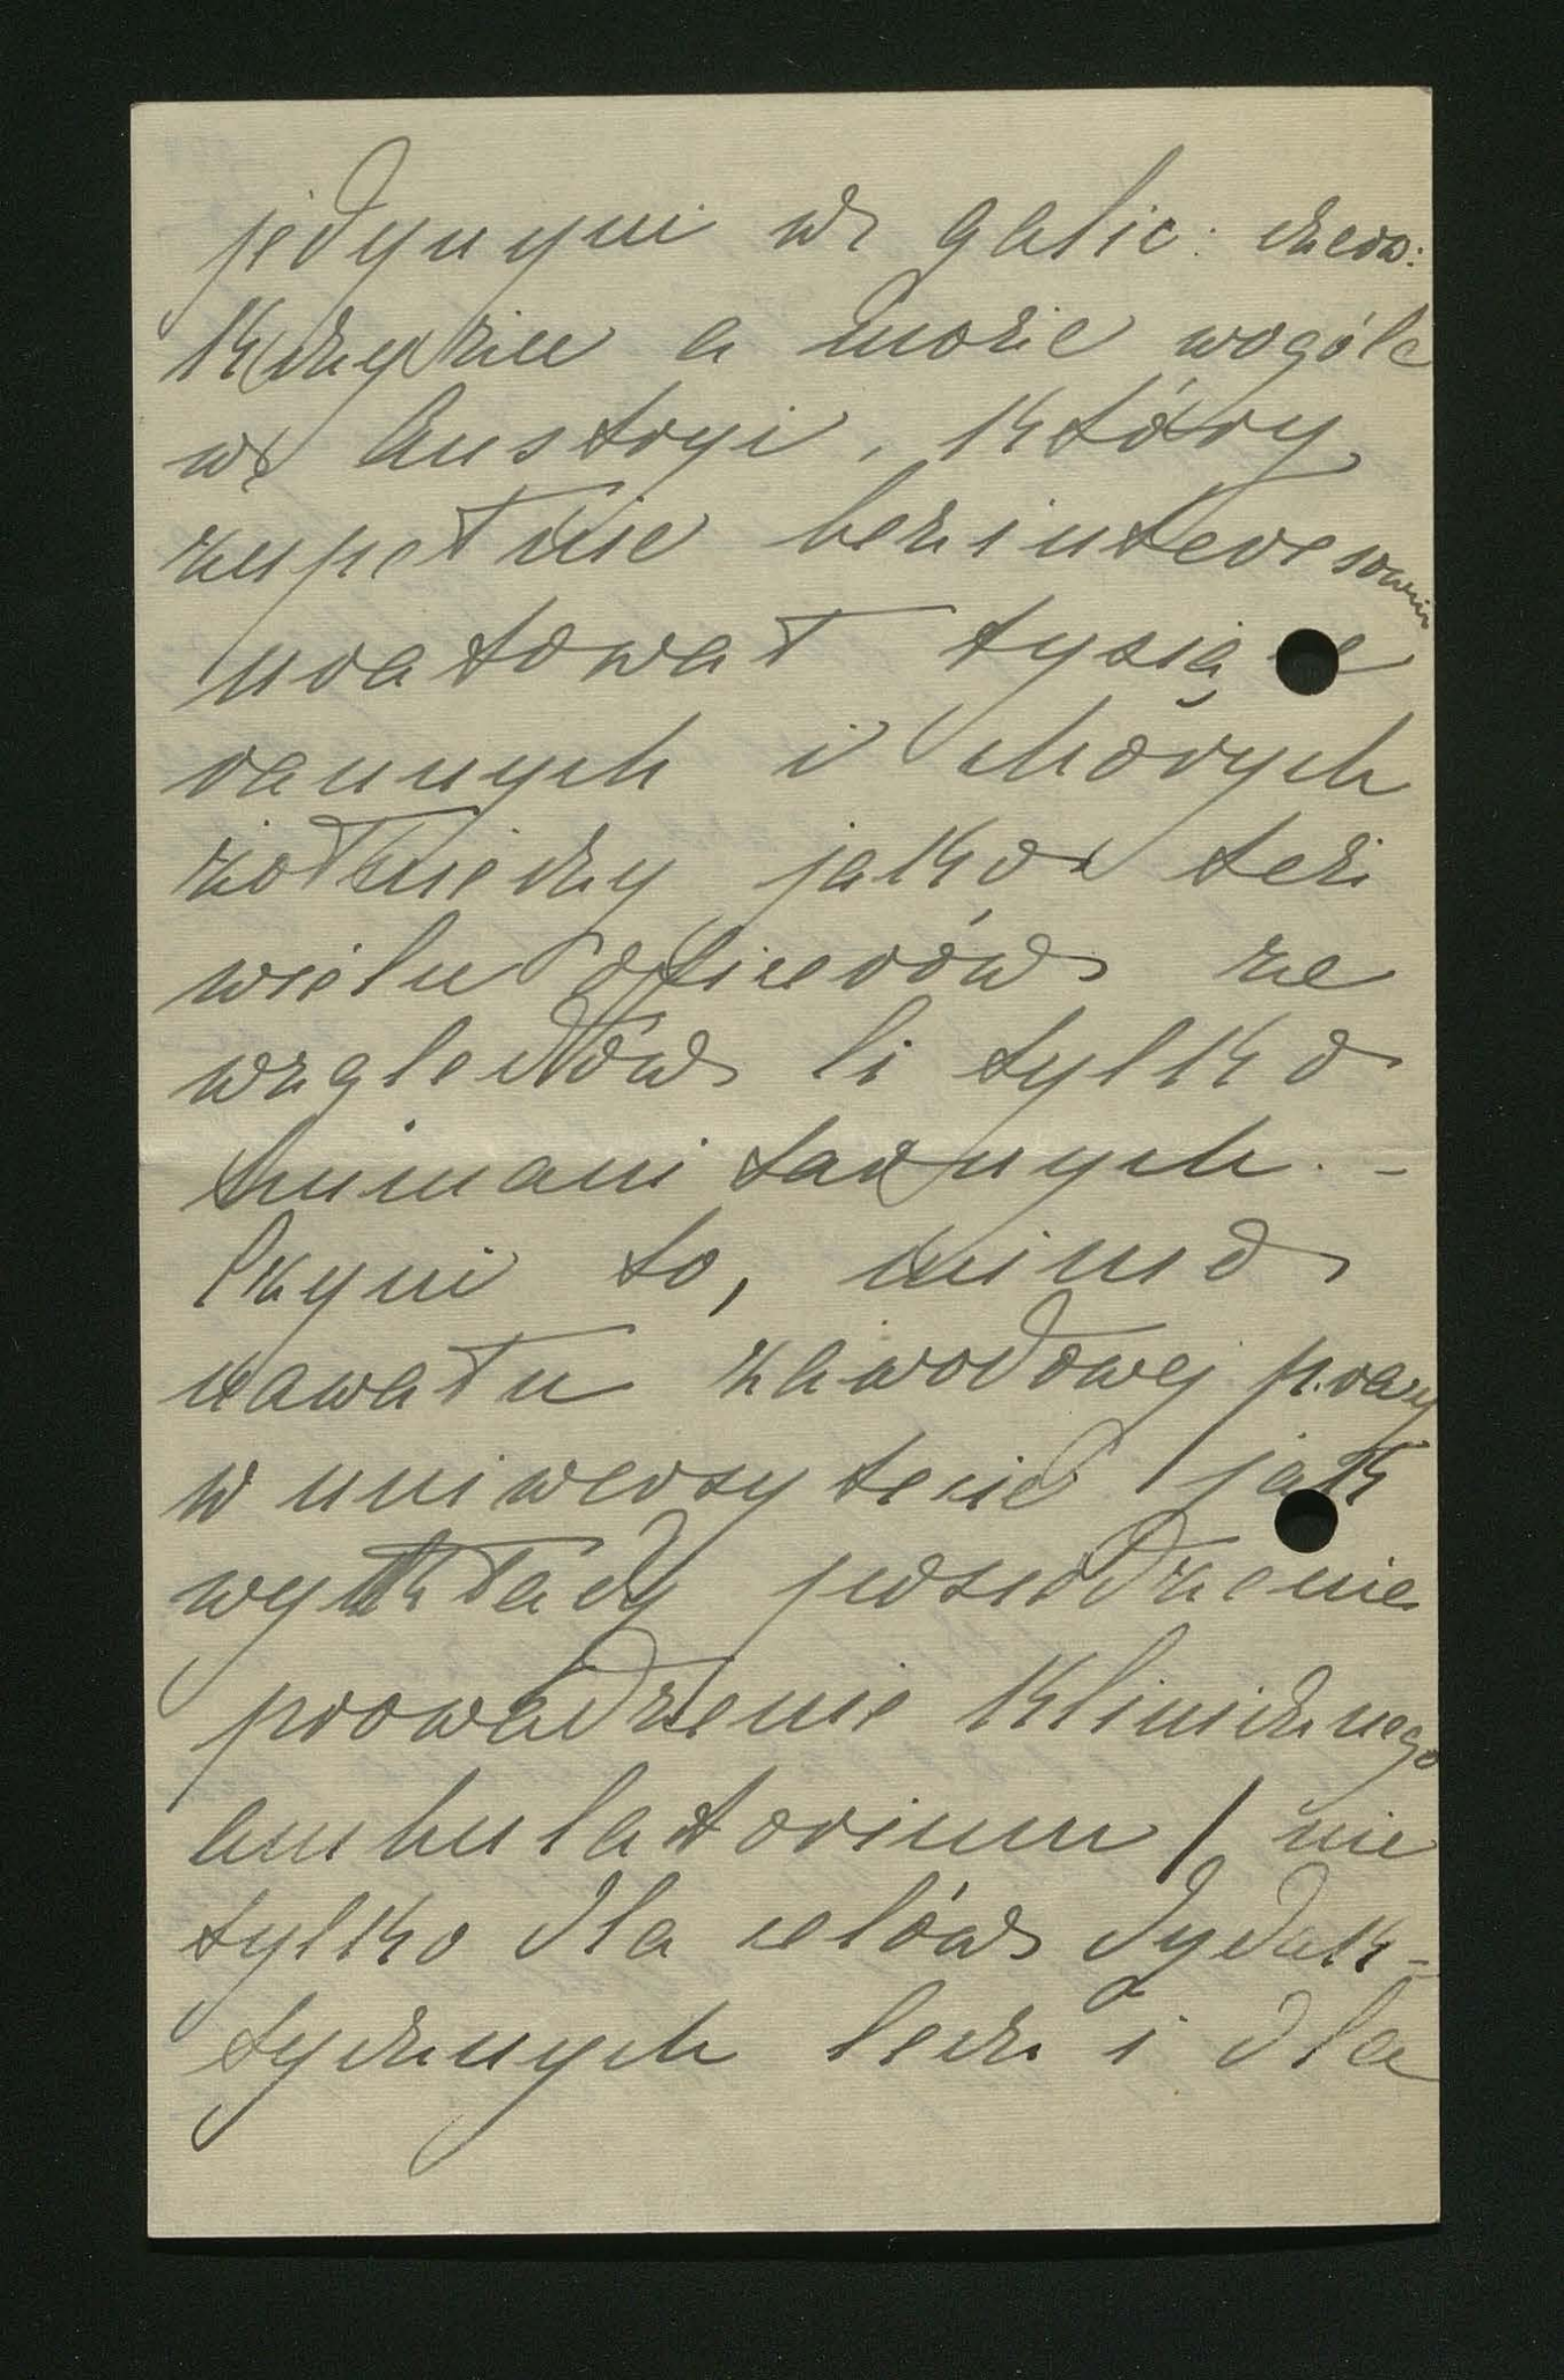 jedynym w galic: czerw:
krzyżu a może wogóle
w Austryi, który
zupełnie bezinteresownie
uratował tysiące
rannych i chorych
żołnierzy jakoteż
wielu oficerów ze
względów li tylko
humanitarnych. -
Czyni to, mimo
nawału zawodowej pracy
w uniwersytecie / jak
wykłady posiedzenie
prowadzenie klinicznego
ambulatorium / nie
tylko dla celów dydak-
tycznych lecz i dla